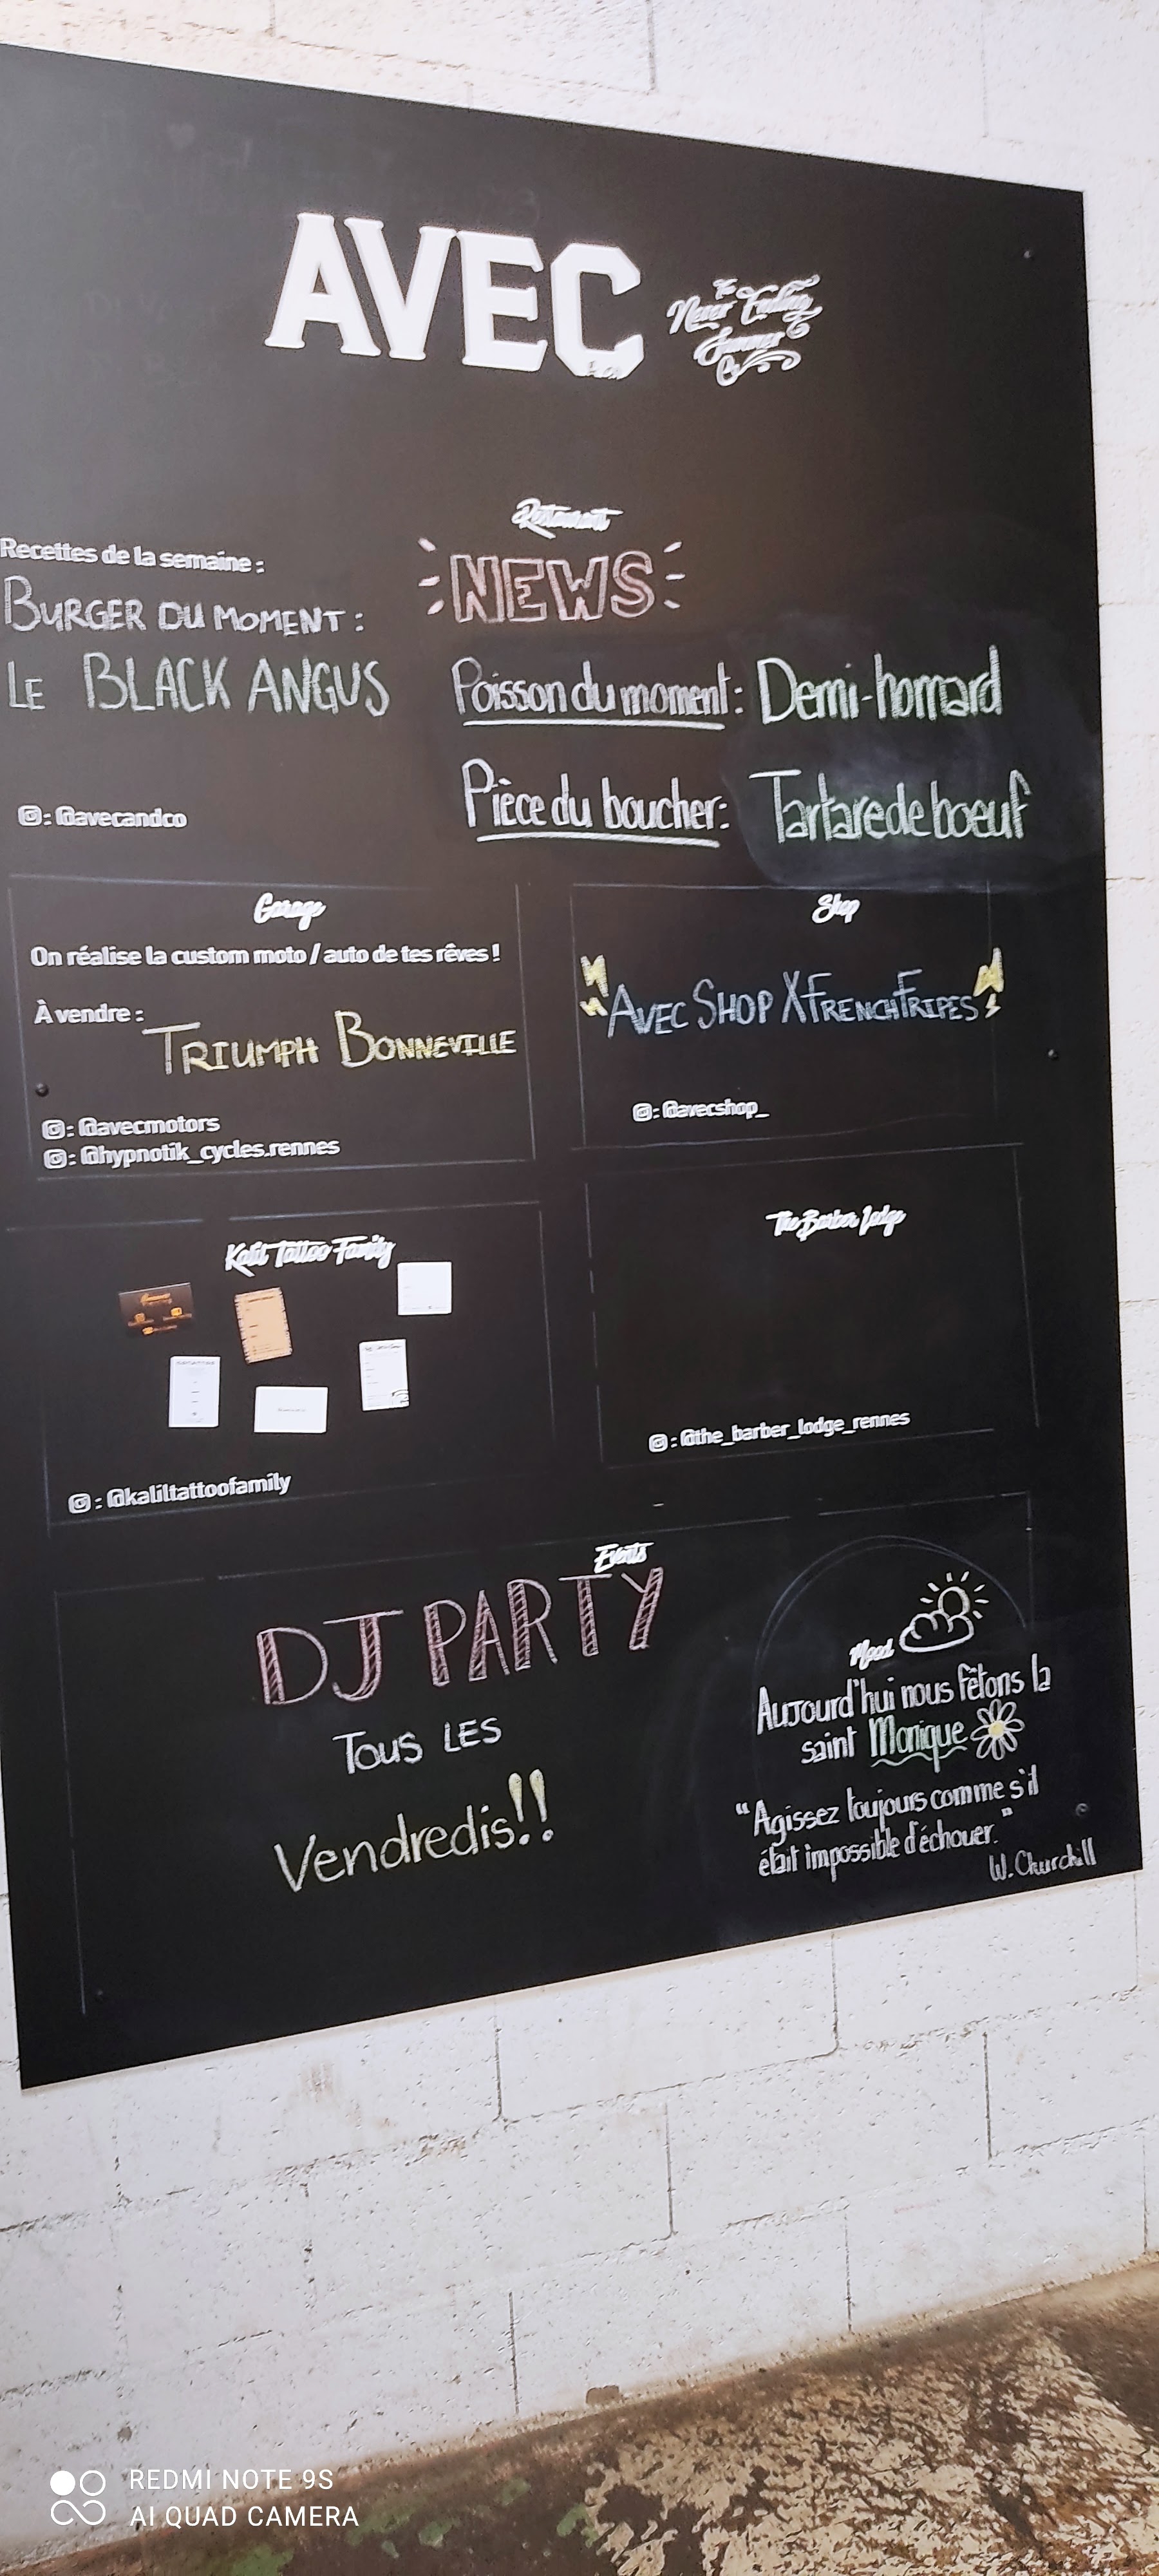 AVEC
The
Never Ending
Summer
Co
Restaurant
NEWS
Recettes de la semaine :
BURGER DU MOMENT :
LE BLACK ANGUS
@avecandco
Poisson du moment : Demi-homard
Pièce du boucher : Tartare de boeuf
Garage
On réalise la custom moto / auto de tes rêves !
À vendre :
TRIUMPH BONNEVILLE
: @avecmotors
: @hypnotik_cycles.rennes
Shop
AVEC SHOP X FRENCHFRIPES
: @avecshop_
Kalil Tattoo Family
: @kaliltattoofamily
The Barber Lodge
: @the_barber_lodge_rennes
Events
DJ PARTY
TOUS LES
Vendredis!!
Mood
Aujourd'hui nous fêtons la
saint Monique
"Agissez toujours comme s'il
était impossible d'échouer."
W. Churchill
REDMI NOTE 9S
AI QUAD CAMERA